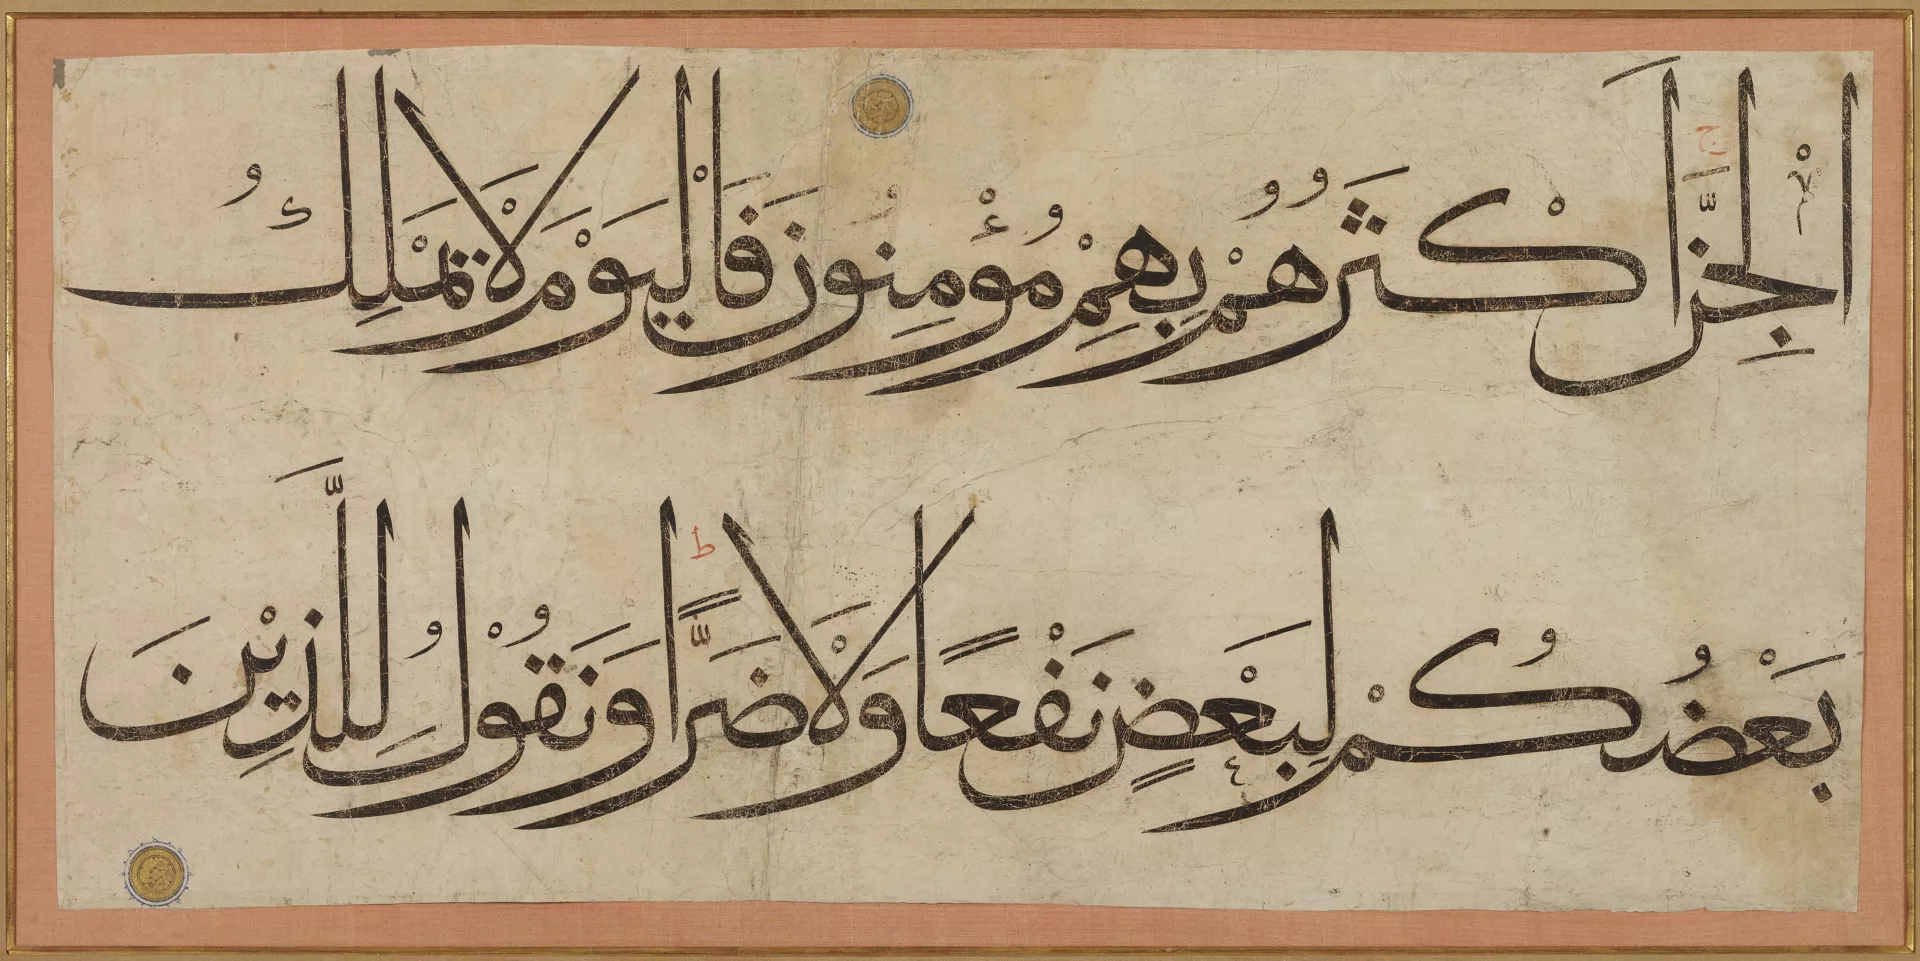 الْجِنَّ أَكْثَرُهُمْ بِهِمْ مُؤْمِنُونَ فَالْيَوْمَ لَا يَمْلِكُ
بَعْضُكُمْ لِبَعْضٍ نَفْعًا وَلَا ضَرًّا وَنَقُولُ لِلَّذِينَ